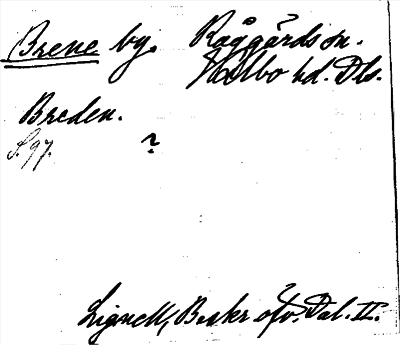 Brene by. Råggärds sn.
Valbo hd. Dls.
Breden.
S. 97. ?
Lignell, Beskr. öfv. Dal. II.